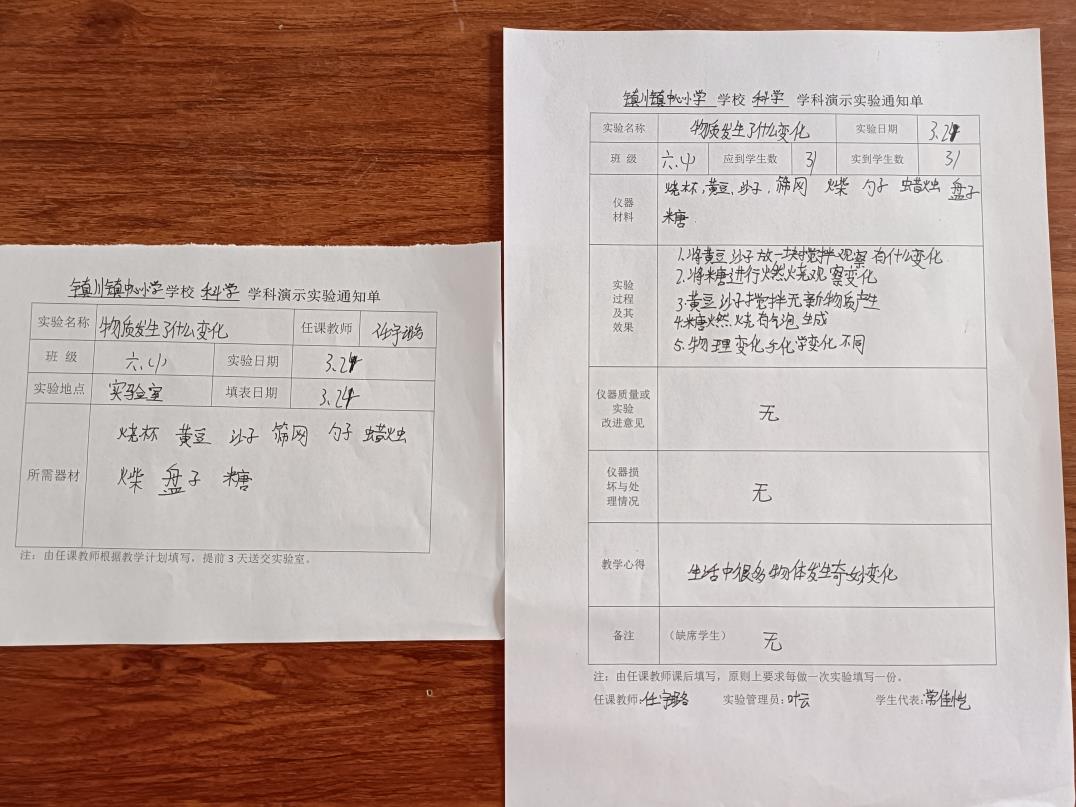 镇川镇中心小学 学校 科学 学科演示实验通知单
实验名称 物质发生了什么变化 任课教师 任宇璐
班 级 六.(1) 实验日期 3.24
实验地点 实验室 填表日期 3.24
所需器材 烧杯 黄豆 沙子 筛网 勺子 蜡烛
火柴 盘子 糖
注：由任课教师根据教学计划填写，提前 3 天送交实验室。
镇川镇中心小学 学校 科学 学科演示实验通知单
实验名称 物质发生了什么变化 实验日期 3.24
班 级 六.(1) 应到学生数 31 实到学生数 31
仪器
材料
烧杯,黄豆、沙子,筛网 火柴 勺子 蜡烛 盘子
糖.
实验
过程
及其
效果
1.将黄豆沙子放一块搅拌观察有什么变化
2.将糖进行燃烧观察变化
3.黄豆沙子搅拌无新物质产生
4.糖燃烧有气泡生成
5.物理变化与化学变化不同
仪器质量或
实验
改进意见
无
仪器损
坏与处
理情况
无
教学心得 生活中很多物体发生奇妙变化
备注 （缺席学生） 无
注：由任课教师课后填写，原则上要求每做一次实验填写一份。
任课教师:任宇璐 实验管理员:叶云 学生代表:常佳